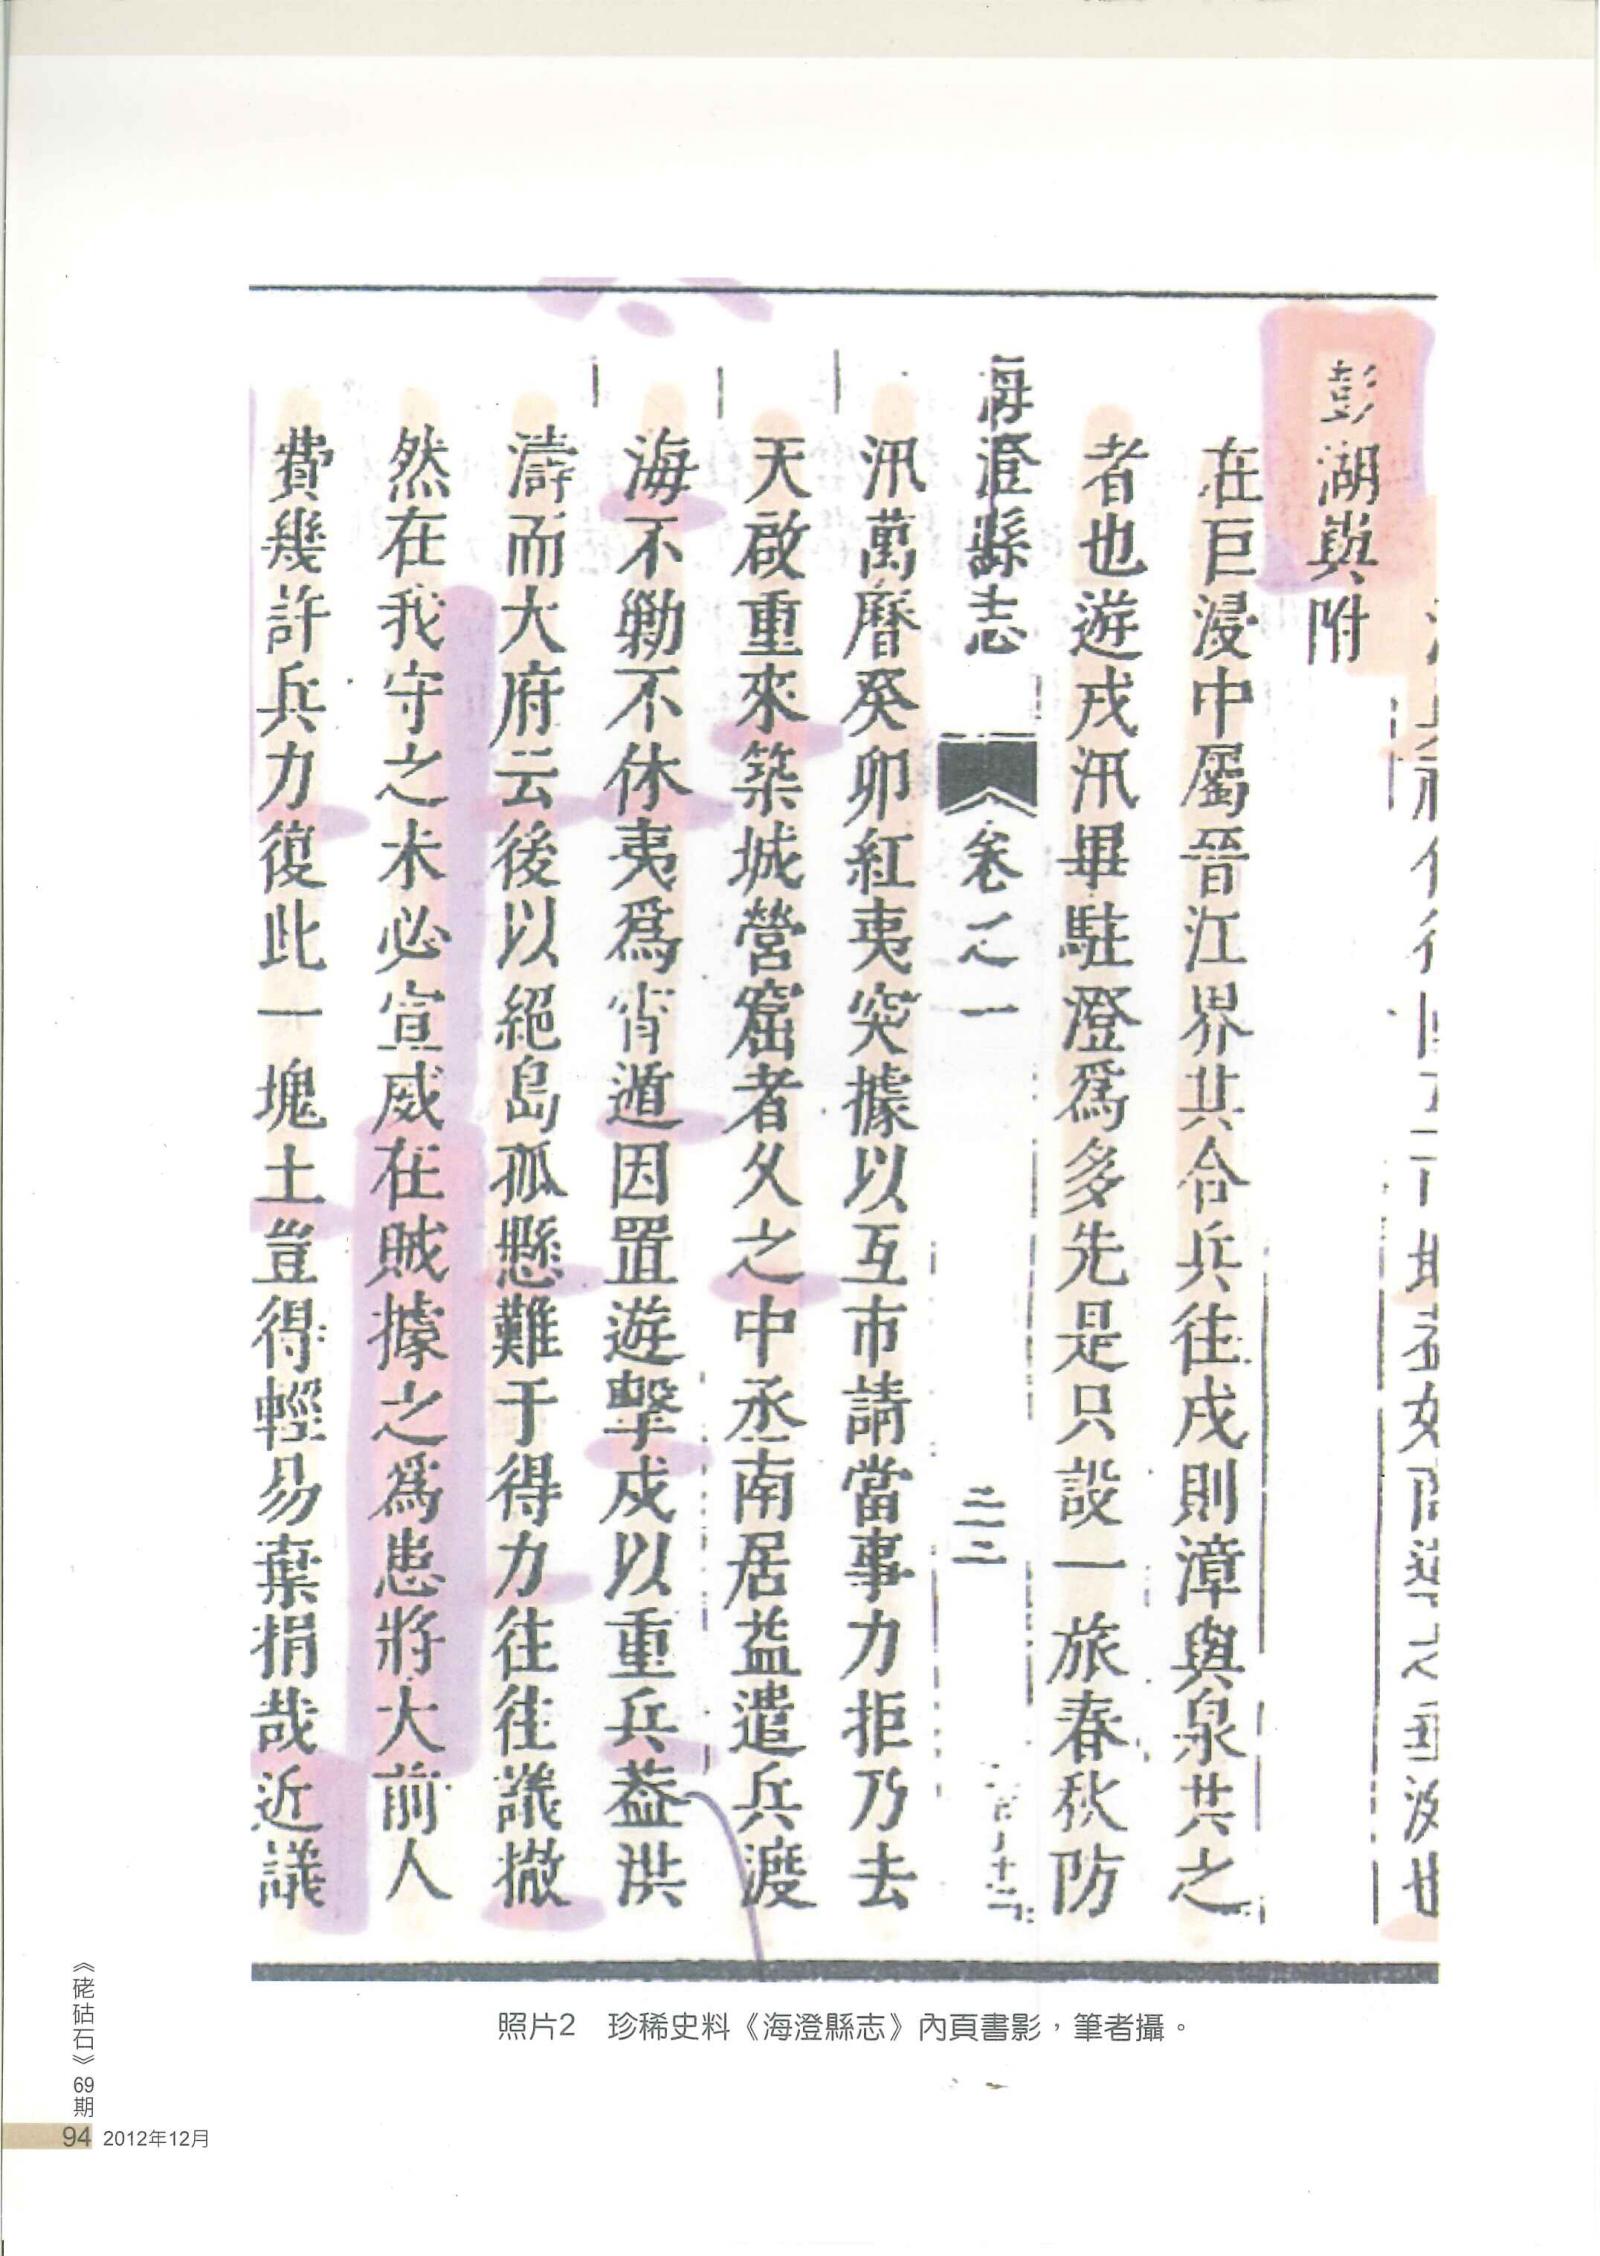 彭湖與附
在巨浸中屬晉江界共合兵往戍則漳與泉共之
者也遊戎汛畢駐澄爲多先是只設一旅春秋防
海澄縣志 卷之一 二二
汛萬曆癸卯紅夷突據以互市請當事力拒乃去
天啟重來築城營窟者久之中丞南居益遣兵渡
海不勦不休夷爲宵遁因置遊擊戍以重兵葢洪
濤而大府云後以絕島孤懸難于得力往往議撤
然在我守之未必宣威在賊據之爲患將大前人
費幾許兵力復此一塊土豈得輕易棄捐哉近議
照片2 珍稀史料《海澄縣志》內頁書影，筆者攝。
《硓𥑮石》69期
94 2012年12月